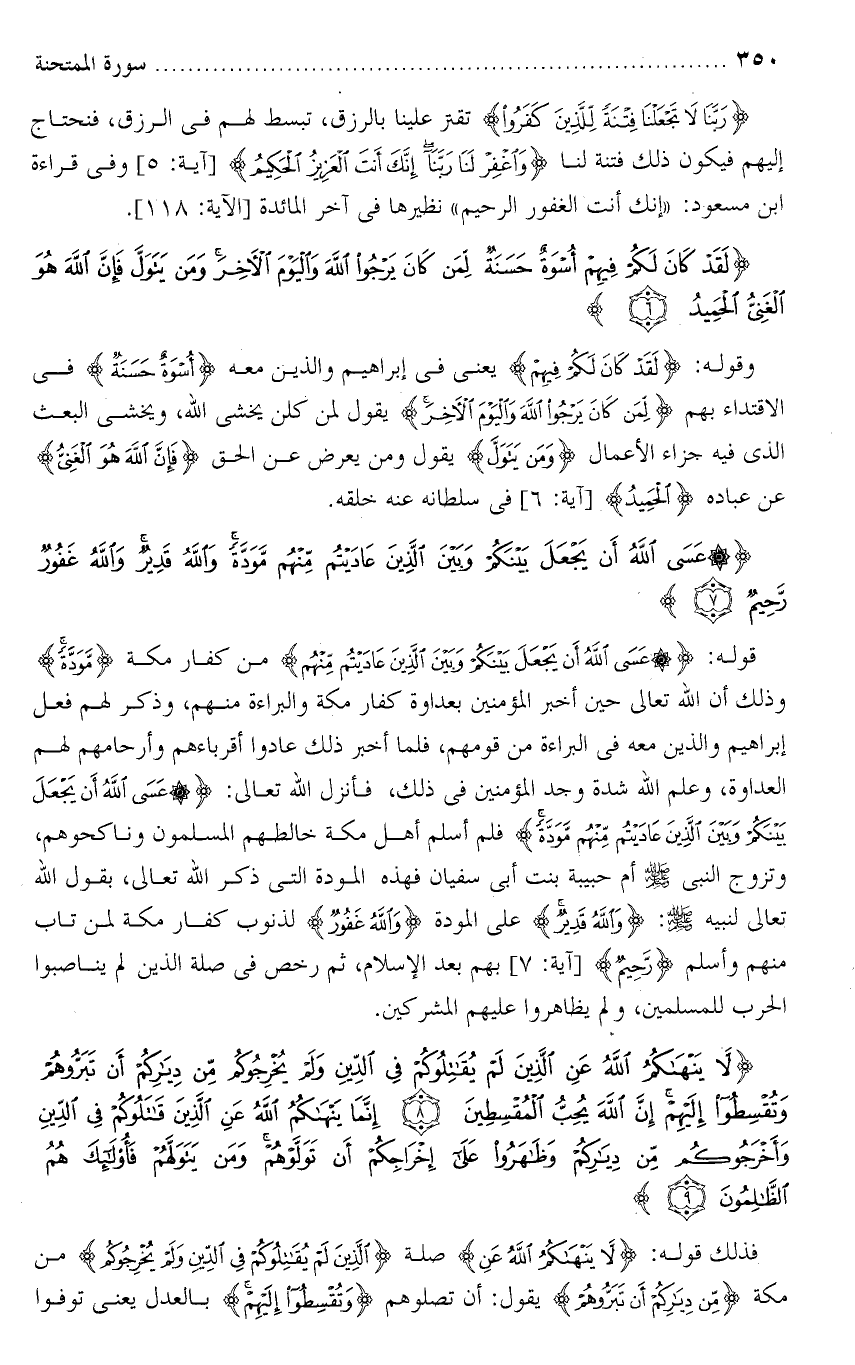 ٣٥٠ ........ سورة الممتحنة
﴿رَبَّنَا لَا تَجْعَلْنَا فِتْنَةً لِّلَّذِينَ كَفَرُوا۟﴾ تقتر علينا بالرزق، تبسط لهم فى الرزق، فنحتاج
إليهم فيكون ذلك فتنة لنا ﴿وَٱغْفِرْ لَنَا رَبَّنَآ ۖ إِنَّكَ أَنتَ ٱلْعَزِيزُ ٱلْحَكِيمُ﴾ [آية: ٥] وفى قراءة
ابن مسعود: «إنك أنت الغفور الرحيم» نظيرها فى آخر المائدة [الآية: ١١٨].
﴿لَقَدْ كَانَ لَكُمْ فِيهِمْ أُسْوَةٌ حَسَنَةٌ لِّمَن كَانَ يَرْجُوا۟ ٱللَّهَ وَٱلْيَوْمَ ٱلْـَٔاخِرَ ۚ وَمَن يَتَوَلَّ فَإِنَّ ٱللَّهَ هُوَ
ٱلْغَنِىُّ ٱلْحَمِيدُ ٦ ﴾
وقوله: ﴿لَقَدْ كَانَ لَكُمْ فِيهِمْ﴾ يعنى فى إبراهيم والذين معه ﴿أُسْوَةٌ حَسَنَةٌ﴾ فى
الاقتداء بهم ﴿لِّمَن كَانَ يَرْجُوا۟ ٱللَّهَ وَٱلْيَوْمَ ٱلْـَٔاخِرَ ۚ﴾ يقول لمن كلن يخشى الله، ويخشى البعث
الذى فيه جزاء الأعمال ﴿وَمَن يَتَوَلَّ﴾ يقول ومن يعرض عن الحق ﴿فَإِنَّ ٱللَّهَ هُوَ ٱلْغَنِىُّ﴾
عن عباده ﴿ٱلْحَمِيدُ﴾ [آية: ٦] فى سلطانه عنه خلقه.
﴿۞عَسَى ٱللَّهُ أَن يَجْعَلَ بَيْنَكُمْ وَبَيْنَ ٱلَّذِينَ عَادَيْتُم مِّنْهُم مَّوَدَّةً ۚ وَٱللَّهُ قَدِيرٌ ۚ وَٱللَّهُ غَفُورٌ
رَّحِيمٌ ٧ ﴾
قوله: ﴿۞عَسَى ٱللَّهُ أَن يَجْعَلَ بَيْنَكُمْ وَبَيْنَ ٱلَّذِينَ عَادَيْتُم مِّنْهُم﴾ من كفار مكة ﴿مَّوَدَّةً ۚ﴾
وذلك أن الله تعالى حين أخبر المؤمنين بعداوة كفار مكة والبراءة منهم، وذكر لهم فعل
إبراهيم والذين معه فى البراءة من قومهم، فلما أخبر ذلك عادوا أقرباءهم وأرحامهم لهم
العداوة، وعلم الله شدة وجد المؤمنين فى ذلك، فأنزل الله تعالى: ﴿۞عَسَى ٱللَّهُ أَن يَجْعَلَ
بَيْنَكُمْ وَبَيْنَ ٱلَّذِينَ عَادَيْتُم مِّنْهُم مَّوَدَّةً ۚ﴾ فلم أسلم أهل مكة خالطهم المسلمون وناكحوهم،
وتزوج النبى ﷺ أم حبيبة بنت أبى سفيان فهذه المودة التى ذكر الله تعالى، بقول الله
تعالى لنبيه ﷺ: ﴿وَٱللَّهُ قَدِيرٌ ۚ﴾ على المودة ﴿وَٱللَّهُ غَفُورٌ﴾ لذنوب كفار مكة لمن تاب
منهم وأسلم ﴿رَّحِيمٌ﴾ [آية: ٧] بهم بعد الإسلام، ثم رخص فى صلة الذين لم يناصبوا
الحرب للمسلمين، ولم يظاهروا عليهم المشركين.
﴿لَّا يَنْهَىٰكُمُ ٱللَّهُ عَنِ ٱلَّذِينَ لَمْ يُقَـٰتِلُوكُمْ فِى ٱلدِّينِ وَلَمْ يُخْرِجُوكُم مِّن دِيَـٰرِكُمْ أَن تَبَرُّوهُمْ
وَتُقْسِطُوٓا۟ إِلَيْهِمْ ۚ إِنَّ ٱللَّهَ يُحِبُّ ٱلْمُقْسِطِينَ ٨ إِنَّمَا يَنْهَىٰكُمُ ٱللَّهُ عَنِ ٱلَّذِينَ قَـٰتَلُوكُمْ فِى ٱلدِّينِ
وَأَخْرَجُوكُم مِّن دِيَـٰرِكُمْ وَظَـٰهَرُوا۟ عَلَىٰٓ إِخْرَاجِكُمْ أَن تَوَلَّوْهُمْ ۚ وَمَن يَتَوَلَّهُمْ فَأُو۟لَـٰٓئِكَ هُمُ
ٱلظَّـٰلِمُونَ ٩ ﴾
فذلك قوله: ﴿لَّا يَنْهَىٰكُمُ ٱللَّهُ عَنِ﴾ صلة ﴿ٱلَّذِينَ لَمْ يُقَـٰتِلُوكُمْ فِى ٱلدِّينِ وَلَمْ يُخْرِجُوكُم﴾ من
مكة ﴿مِّن دِيَـٰرِكُمْ أَن تَبَرُّوهُمْ﴾ يقول: أن تصلوهم ﴿وَتُقْسِطُوٓا۟ إِلَيْهِمْ ۚ﴾ بالعدل يعنى توفوا